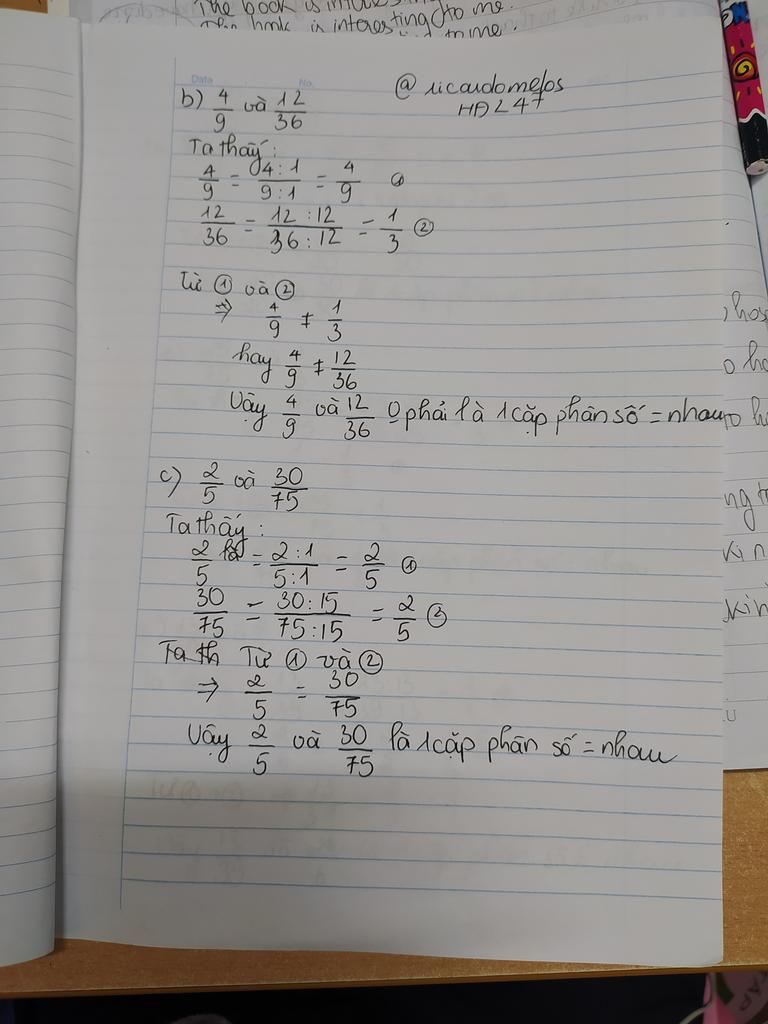 The book is
The book is interesting to me.
to me.
Date No.
@ricardomelos
HD247
b) 4/9 và 12/36
Ta thấy:
4/9 = 4:1/9:1 = 4/9 ①
12/36 = 12:12/36:12 = 1/3 ②
Từ ① và ②
⇒ 4/9 ≠ 1/3
hay 4/9 ≠ 12/36
Vậy 4/9 và 12/36 0 phải là 1 cặp phân số = nhau
c) 2/5 và 30/75
Ta thấy:
2/5 = 2:1/5:1 = 2/5 ①
30/75 = 30:15/75:15 = 2/5 ②
Ta th Từ ① và ②
⇒ 2/5 = 30/75
Vậy 2/5 và 30/75 là 1 cặp phân số = nhau